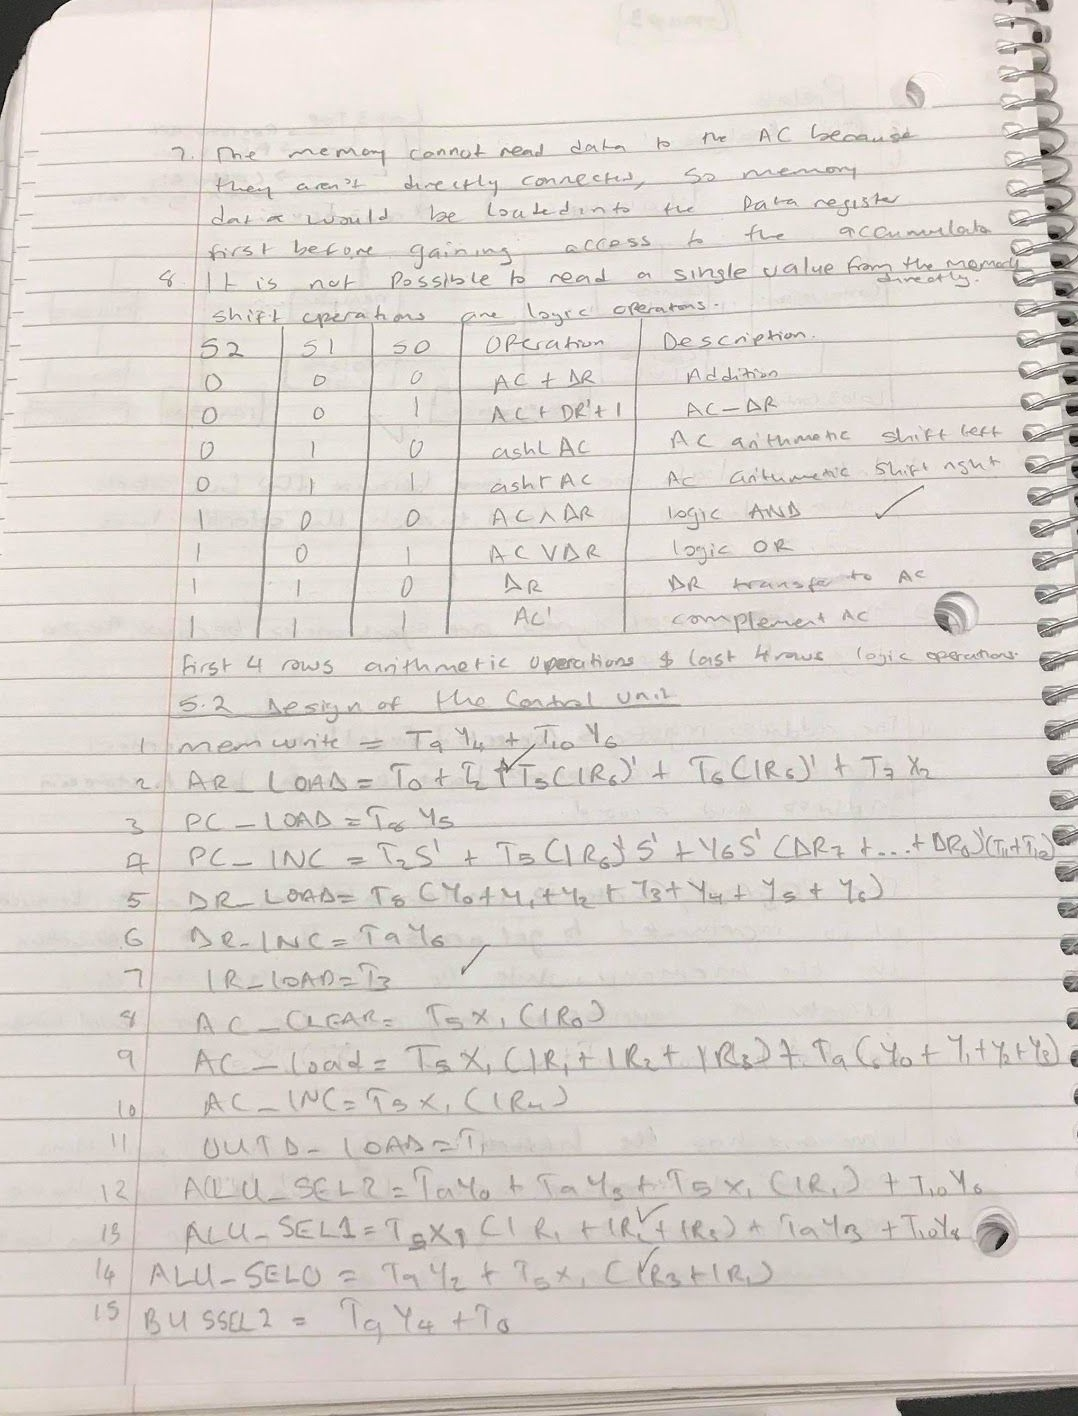 7. The memory cannot read data to the AC because
they aren't directly connected, so memory
data would be loaded into the Data register
first before gaining access to the accumulato
8. It is not possible to read a single value from the memory
directly.
shift operations are logic operations.
S2 S1 S0 Operation Description.
0 0 0 AC + DR Addition
0 0 1 AC + DR' + 1 AC - DR
0 1 0 ashl AC AC arithmetic shift left
0 1 1 ashr AC AC arithmetic shift right
1 0 0 AC ∧ DR logic AND ✓
1 0 1 AC ∨ DR logic OR
1 1 0 DR DR transfer to AC
1 1 1 AC' complement AC
First 4 rows arithmetic operations & last 4 rows logic operations.
5.2 Design of the Control unit
1 memwrite = T9 Y4 + T10 Y6
2. AR_LOAD = T0 + T2 + T5(IR6)' + T6(IR6)' + T7 X2
3 PC_LOAD = T8 Y5
4 PC_INC = T2S' + T5(IR6)'S' + Y6S' (DR7 + ... + DR0)'(T11+T12)
5 DR_LOAD = T8 (Y0 + Y1 + Y2 + Y3 + Y4 + Y5 + Y6)
6 DR_INC = T9Y6
7 IR_LOAD = T3 ✓
8 AC_CLEAR = T5X1 (IR0)
9 AC_Load = T5X1 (IR1 + IR2 + IR3) + T9 (Y0 + Y1 + Y2 + Y3)
10 AC_INC = T5X1 (IR4)
11 OUTD_LOAD = T1
12 ALU_SEL2 = T9Y0 + T9Y3 + T5X1 (IR1) + T10Y6
13 ALU_SEL1 = T5X1 (IR1 + IR2 + IR3) + T9Y3 + T10Y6
14 ALU_SEL0 = T9Y2 + T5X1 (IR3+IR1)
15 BUSSEL2 = T9 Y4 + T0